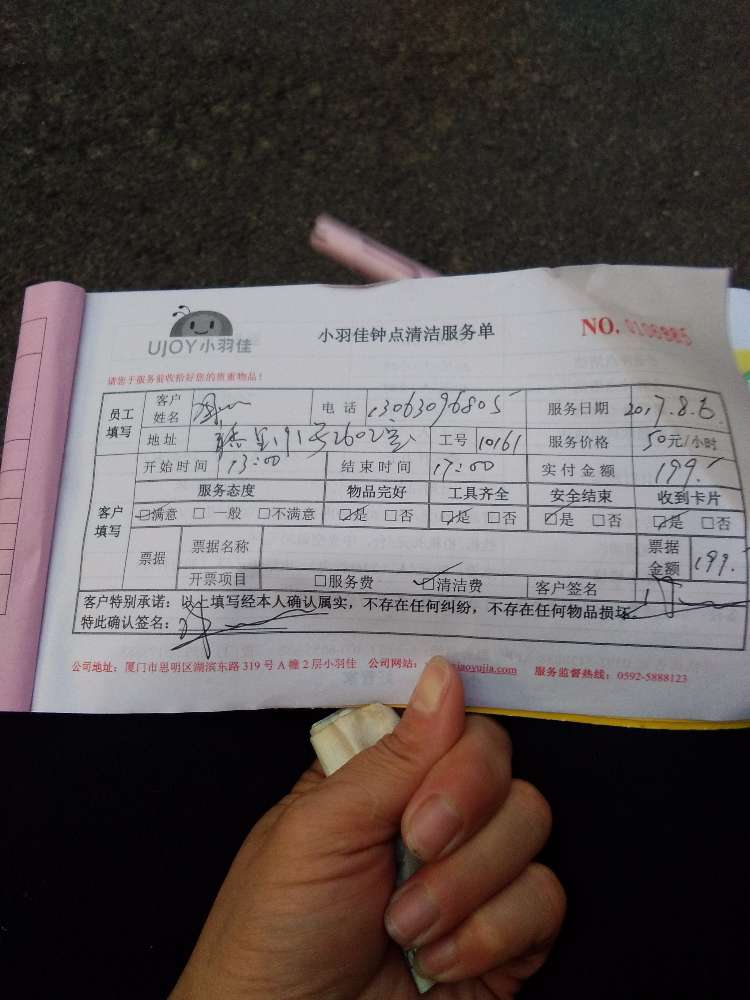 UJOY小羽佳
小羽佳钟点清洁服务单
NO. 0106985
请您于服务前收拾好您的贵重物品！
员工填写 客户姓名 电话 13063096805 服务日期 2017.8.6
地址 91号2602室 工号 10161 服务价格 50元/小时
客户填写 开始时间 13:00 结束时间 17:00 实付金额 199.-
服务态度 物品完好 工具齐全 安全结束 收到卡片
☑满意 □一般 □不满意 ☑是 □否 ☑是 □否 ☑是 □否 ☑是 □否
票据 票据名称 票据金额 199.-
开票项目 □服务费 ☑清洁费 客户签名
客户特别承诺：以上填写经本人确认属实，不存在任何纠纷，不存在任何物品损坏
特此确认签名：
公司地址：厦门市思明区湖滨东路 319 号 A 幢 2 层小羽佳 公司网站： xiaoyujia.com 服务监督热线：0592-5888123